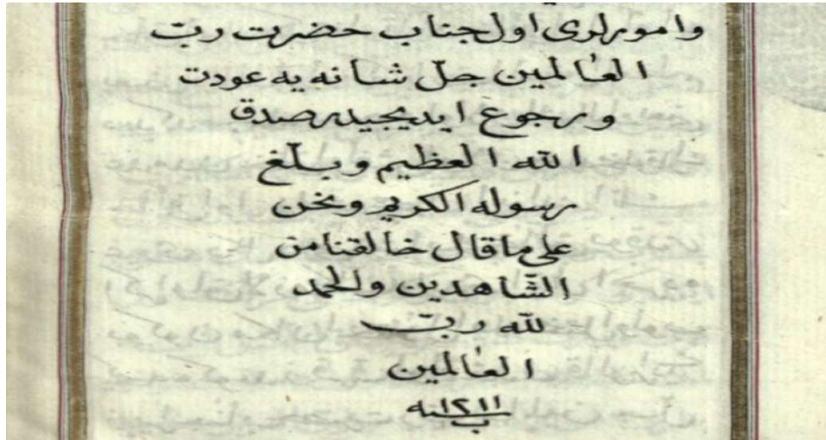 وامورلرى اول جناب حضرت ربّ
العالمين جلّ شانه يه عودت
ورجوع ايديجيدر صدق
الله العظيم وبلّغ
رسوله الكريم ونحن
على ما قال خالقنا من
الشّاهدين والحمد
لله ربّ
العالمين
سنه ١٢١١